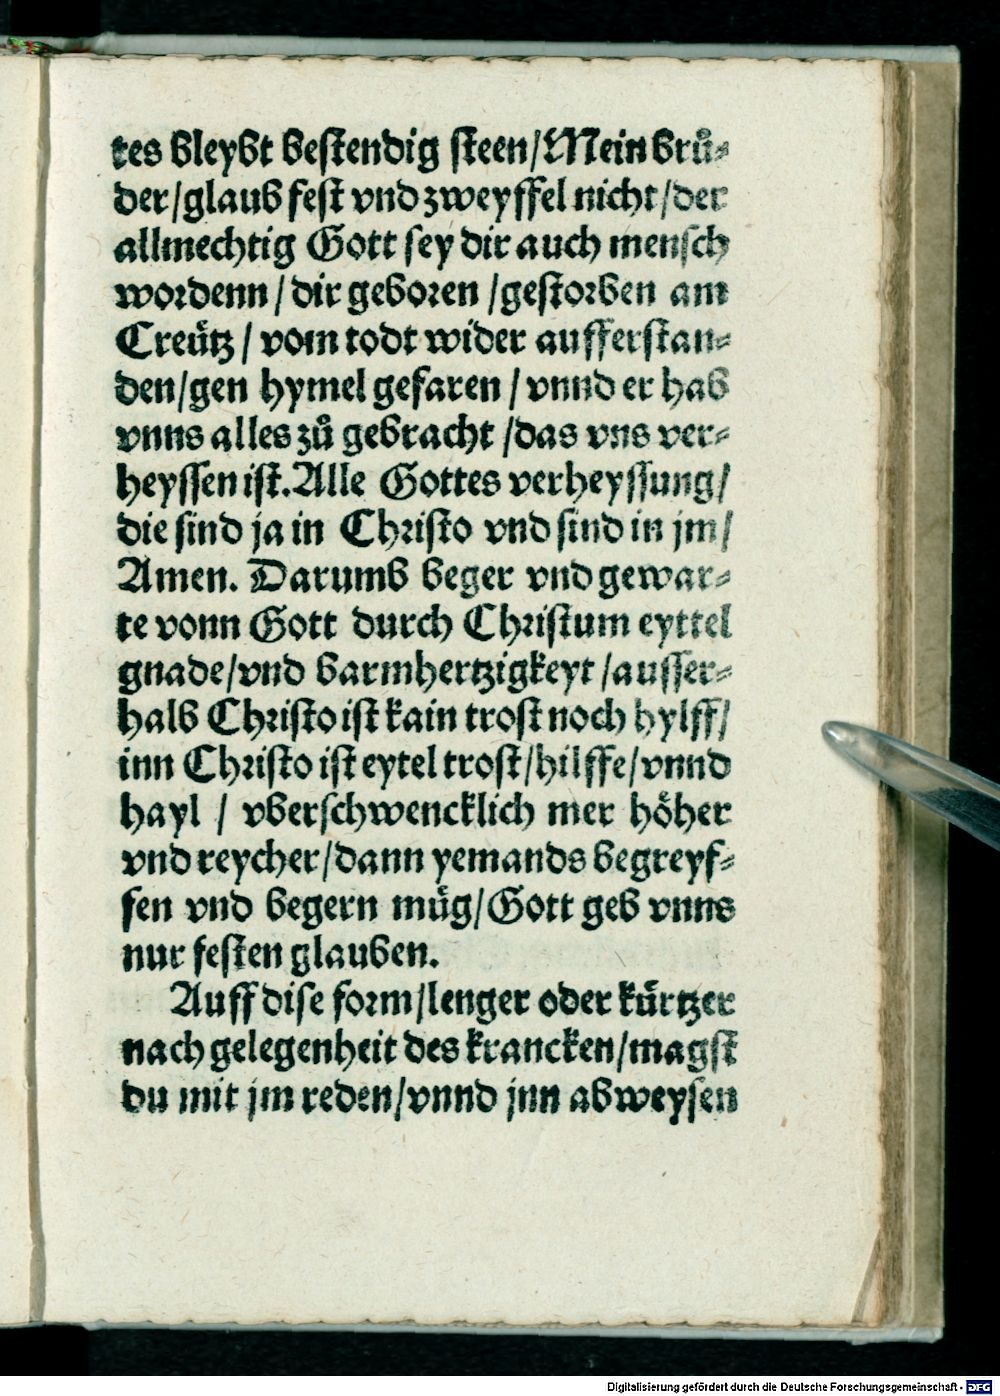 tes bleybt bestendig steen/Mein brů⸗
der/glaub fest vnd zweyffel nicht/der
allmechtig Gott sey dir auch mensch
wordenn/dir geboren/gestorben am
Creütz/vom todt wider aufferstan⸗
den/gen hymel gefaren/vnnd er hab
vnns alles zů gebracht/das vns ver⸗
heyssen ist.Alle Gottes verheyssung/
die sind ja in Christo vnd sind in jm/
Amen. Darumb beger vnd gewar⸗
te vonn Gott durch Christum eyttel
gnade/vnd barmhertzigkeyt/ausser⸗
halb Christo ist kain trost noch hylff/
inn Christo ist eytel trost/hilffe/vnnd
hayl / vberschwencklich mer höher
vnd reycher/dann yemands begreyf⸗
fen vnd begern müg/Gott geb vnns
nur festen glauben.
Auff dise form/lenger oder kürtzer
nach gelegenheit des krancken/magst
du mit jm reden/vnnd jnn abweysen
Digitalisierung gefördert durch die Deutsche Forschungsgemeinschaft - DFG